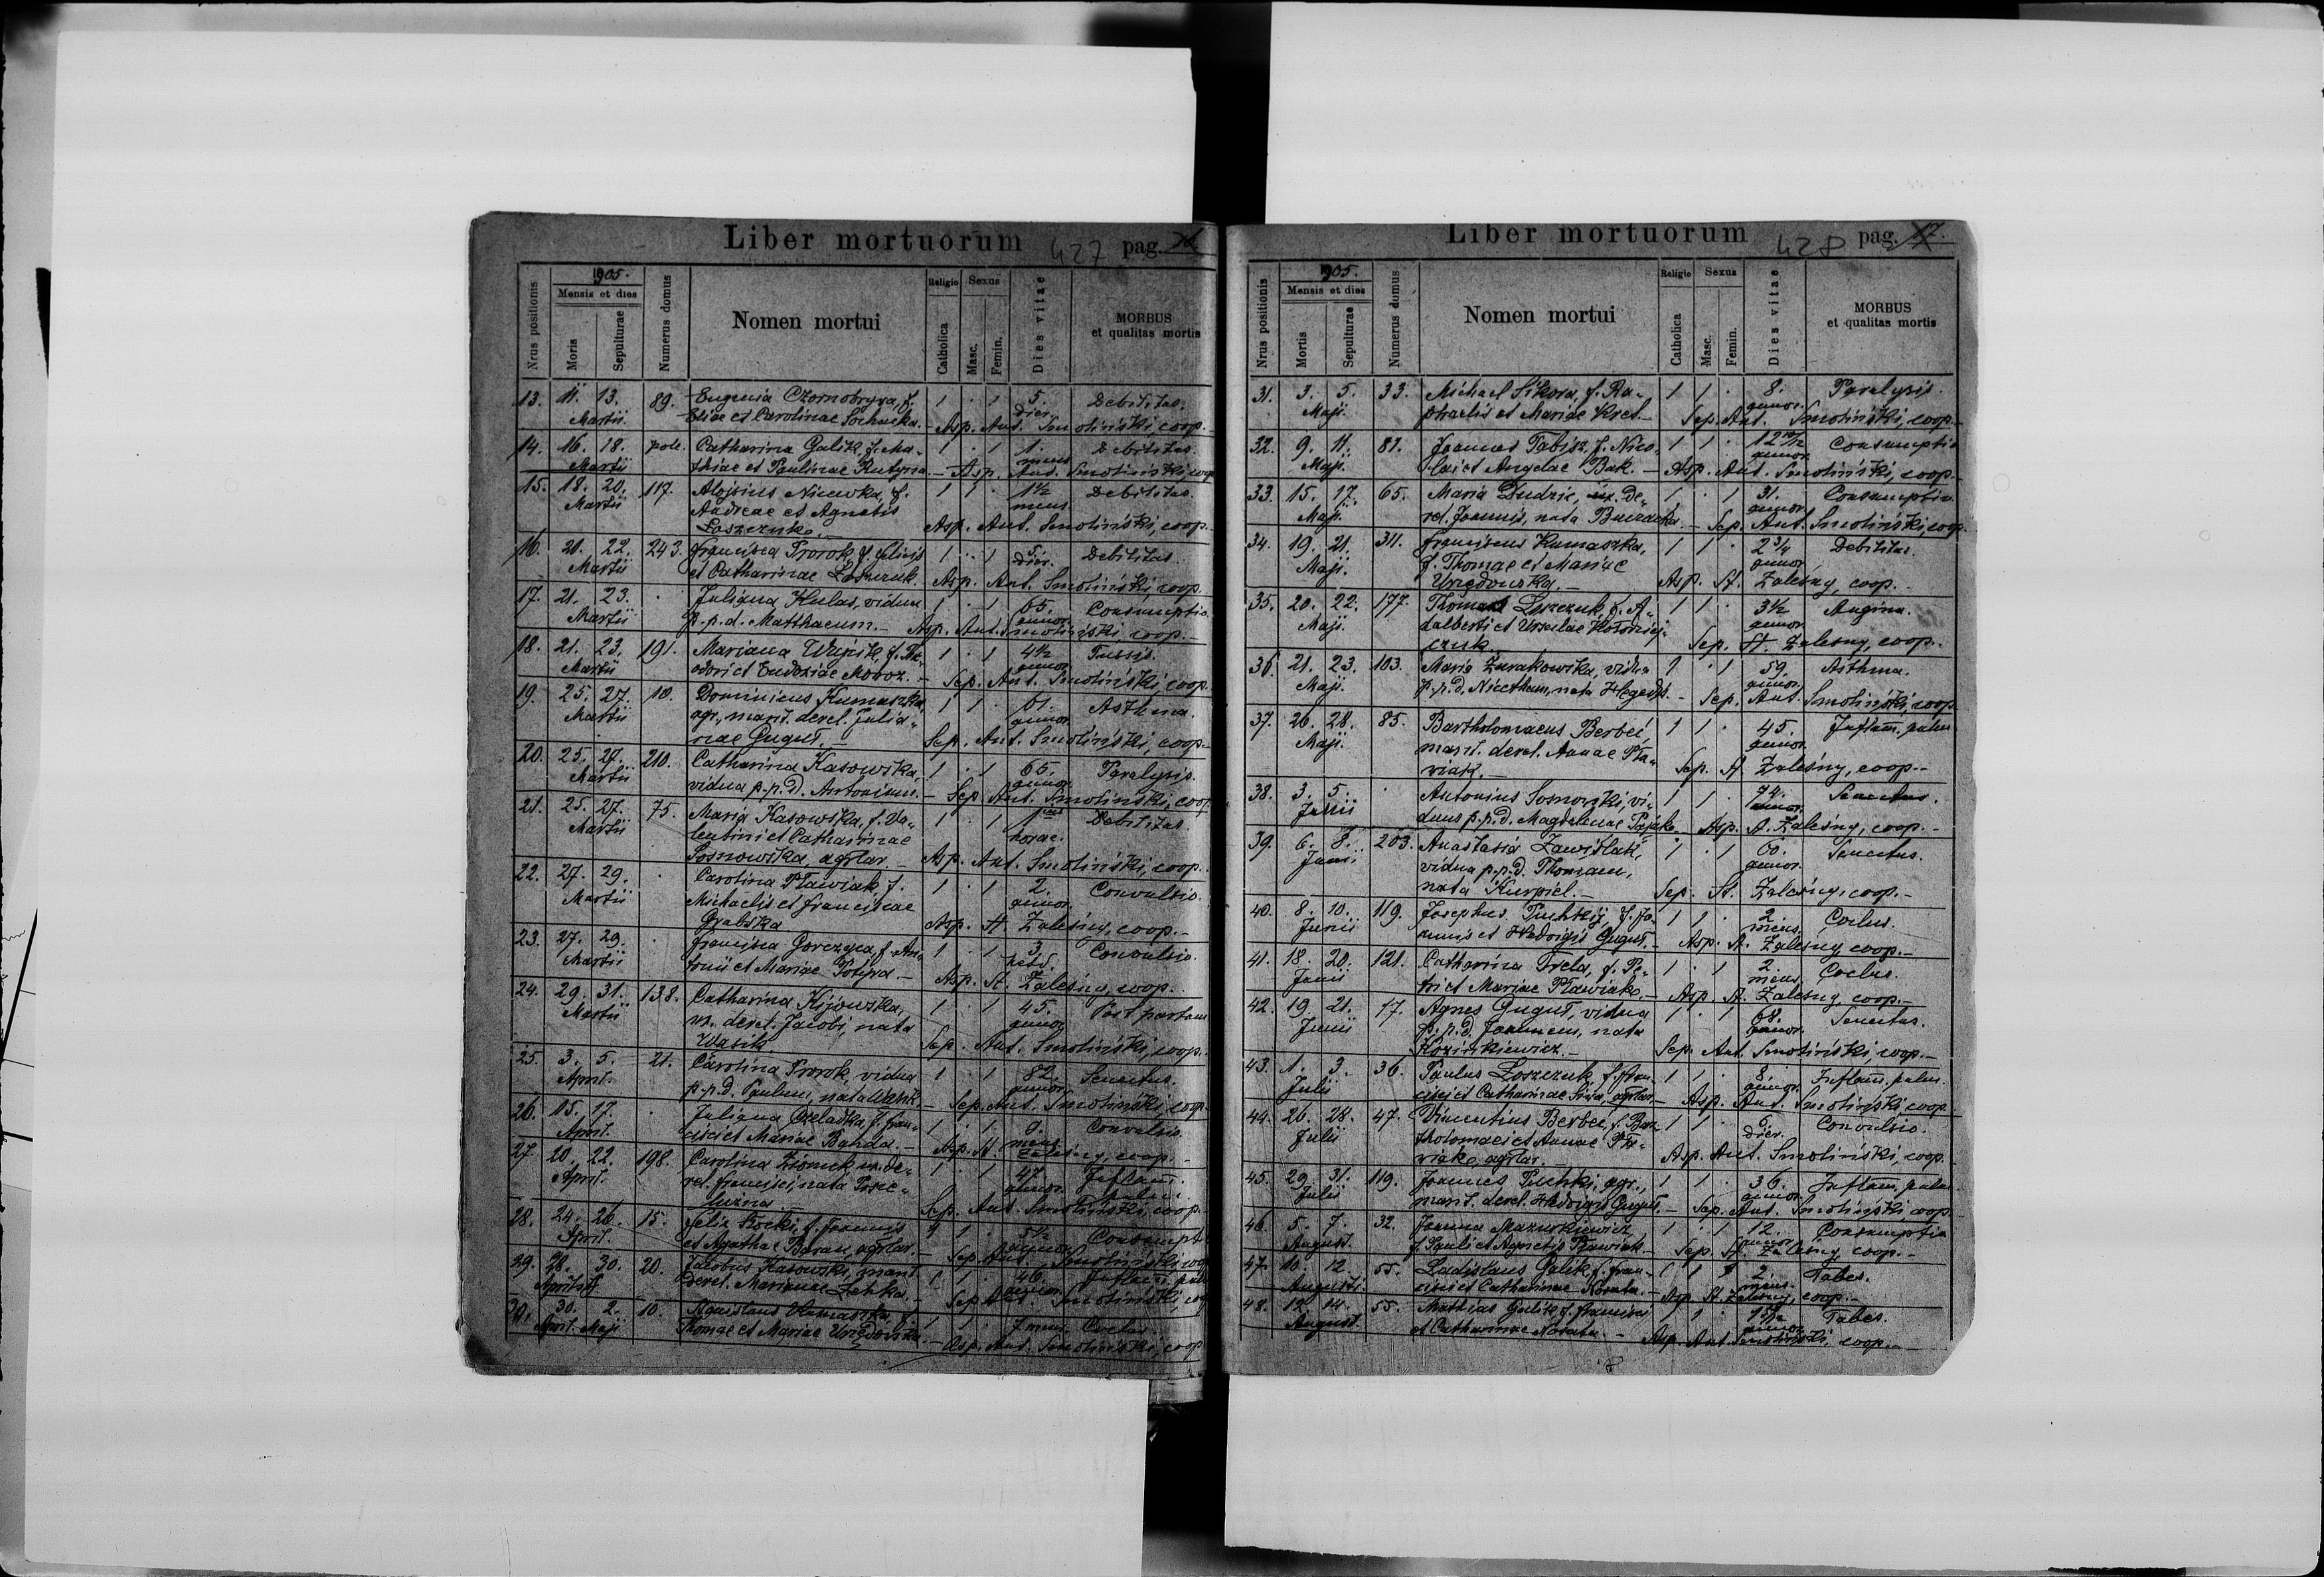 Liber mortuorum 427 pag.
1905.
Nrus positionis
Mensis et dies
Moris
Sepulturae
Numerus domus
Nomen mortui
Religio
Catholica
Sexus
Masc.
Femin.
Dies vitae
MORBUS
et qualitas mortis
13. 11. 13. 89. Eugenia Czornobryva, f. 1 · 1 5. Debilitas.
Martii Eliae et Carolinae Sochacka. dier.
Asp. Ant. Smoliński, coop.
14. 16. 18. pole. Catharina Galik, f. Ma- 1 · 1 1. Debilitas.
Martii thiae et Paulinae Rutyna. mens
Asp. Ant. Smoliński, coop
15. 18. 20. 117. Aloisius Niewka, f. 1 1 · 1½ Debilitas.
Martii Andreae et Agnetis mens
Loszczuk. Asp. Ant. Smoliński, coop.
16. 21. 22. 243. Francisca Prorok, f. Felicis 1 · 1 5. Debilitas.
Martii et Catharinae Loszczuk. dier.
Asp. Ant. Smoliński, coop.
17. 21. 23. · Juliana Kulas, vidua 1 · 1 65. Consumptio
Martii p.p.d. Matthaeum. annor.
Asp. Ant. Smoliński coop.
18. 21. 23. 191. Mariana Wujcik, f. 1 · 1 4½ Tussis.
Martii odori et Eudoxiae Movoz. annor
Sep. Ant. Smoliński, coop.
19. 25. 27. 10. Dominicus Kumaszka 1 1 · 61. Asthma.
Martii agr., marit. derel. Julia- annor
nae Gugut. Sep. Ant. Smoliński, coop.
20. 25. 27. 210. Catharina Kasowska, 1 · 1 65. Paralysis.
Martii vidua p.p.d. Antonium. annor
Sep. Ant. Smoliński, coop.
21. 25. 27. 75. Maria Kasowska, f. Va- 1 · 1 Debilitas.
Martii lentini et Catharinae horae.
Sosnowska, agrlar. Asp. Ant. Smoliński, coop.
22. 27. 29. · Carolina Pławiak, f. 1 · 1 2. Convulsio.
Martii Michaelis et Franciscae annor.
Grabska Asp. St. Zaleśny, coop.
23. 27. 29. · Francisca Gorczyca, f. An- 1 · 1 3 Convulsio.
Martii tonii et Mariae Potyra hebd.
Asp. St. Zaleśny, coop.
24. 29. 31. 138. Catharina Kijowska, 1 · 1 45. Post partum
Martii ux. derel. Jacobi, nata annor
Wasik. Sep. Ant. Smoliński, coop.
25. 3. 5. 21. Carolina Prorok, vidua 1 · 1 82. Senectus.
April. p.p.d. Paulum, nata annor
Sep. Ant. Smoliński, coop.
26. 15. 17. · Juliana Czeladka, f. Fran- 1 · 1 Convulsio.
April. cisci et Mariae Banda. mens.
Asp. St. Zaleśny, coop.
27. 20. 22. 198. Carolina Zionek, ux. de- 1 · 1 47. Inflam.
April. rel. Francisci, nata annor. pulm.
Sep. Ant. Smoliński, coop.
28. 24. 26. 15. Felix f. Joannis 1 1 · 5½ Consumpt
April. et Agathae Baran, agrlar. annor
Sep. Ant. Smoliński coop
29. 28. 30. 20. Jacobus Kasowski, marit 1 1 · 46. Inflam. pulm
Aprilis derel. Marianae Lehka. annor
Sep. Ant. Smoliński coop
30. 30. 2. 10. Kumaszka, f. 1 1 · 7 mens. Coclus.
April. Maji Thomae et Mariae Urzędowska.
Asp. Ant. Smoliński, coop
Liber mortuorum 428 pag. 17.
1905.
Nrus positionis
Mensis et dies
Mortis
Sepulturae
Numerus domus
Nomen mortui
Religio
Catholica
Sexus
Masc.
Femin.
Dies vitae
MORBUS
et qualitas mortis
31. 3. 5. 33. Michael Sikora, f. Ra- 1 1 · 8. Paralysis.
Maji. phaelis et Mariae Kret. annor.
Sep. Ant. Smoliński, coop.
32. 9. 11. 81. Joannes Tabisz, f. Nico- 1 1 · 12 Consumptio
Maji. lai et Angelae Bak. annor
Asp. Ant. Smoliński, coop.
33. 15. 17. 65. Maria Dudzic, ux. De- 1 · 1 31. Consumptio.
Maji. rel. Joannis, nata annor
Sep. Ant. Smoliński, coop.
34. 19. 21. 311. Franciscus Kumaszka, 1 1 · 2¾ Debilitas.
Maji. f. Thomae et Mariae annor
Urzędowska. Asp. St. Zaleśny, coop.
35. 20. 22. 177. Thomas Loszczuk, f. A- 1 1 · 3½ Angina.
Maji. dalberti et Ursulae Hołowiej- annor
czuk. Sep. St. Zaleśny, coop.
36. 21. 23. 103. Maria Żurakowska, vidua 1 · 1 59. Asthma.
Maji. p.p.d. Nicetham, nata annor.
Sep. Ant. Smoliński, coop
37. 26. 28. 85. Bartholomaeus Berbeć, 1 1 · 45. Inflam. pulm
Maji. marit. derel. Annae Pła- annor.
wiak. Sep. St. Zaleśny, coop.
38. 3. 5. · Antonius Sosnowski, vi- 1 1 · 74. Senectus.
Junii duus p.p.d. Magdalenae Pająk. annor.
Asp. St. Zaleśny, coop.
39. 6. 8. 203. Anastasia Zawiślak, 1 · 1 60. Senectus.
Junii vidua p.p.d. Thomam, annor.
nata Kurpiel. Sep. St. Zaleśny, coop.
40. 8. 10. 119. Josephus f. Jo- 1 1 · 2 Coclus.
Junii annis et Hedvigis Gugut. mens.
Asp. St. Zaleśny, coop.
41. 18. 20. 121. Catharina Trela, f. Pe- 1 · 1 2. Coclus.
Junii tri et Mariae Pławiak. mens
Asp. St. Zaleśny, coop.
42. 19. 21. 17. Agnes Gugut, vidua 1 · 1 68. Senectus.
Junii p.p.d. Joannem, nata annor.
Kozinkiewicz. Sep. Ant. Smoliński, coop.
43. 1. 3. 36. Paulus Loszczuk, f. Fran- 1 1 · 8. Inflam. pulm.
Julii cisci et Catharinae agrlar. annor.
Asp. Ant. Smoliński, coop.
44. 26. 28. 47. Vincentius Berbeć, f. Bar- 1 1 · 6. Convulsio.
Julii tholomaei et Annae Pła- dier.
wiak, agrlar. Asp. Ant. Smoliński, coop.
45. 29. 31. 119. Joannes agr., 1 1 · 36. Inflam. pulm.
Julii marit. derel. Hedvigis Gugut. annor.
Sep. Ant. Smoliński, coop.
46. 5. 7. 32. Joanna Mazurkiewicz, 1 · 1 12. Consumptio
August. f. Pauli et Agnetis Pławiak. annor
Sep. St. Zaleśny, coop.
47. 10. 12. 55. Ladislaus Galik, f. Fran- 1 1 · 2 Tabes.
Augusti. cisci et Catharinae Novata. mens.
Asp. St. Zaleśny, coop.
48. 12. 14. 55. Mathias Galik, f. Francisci 1 1 · Tabes.
August. et Catharinae Novata. annor
Asp. Ant. Smoliński, coop.